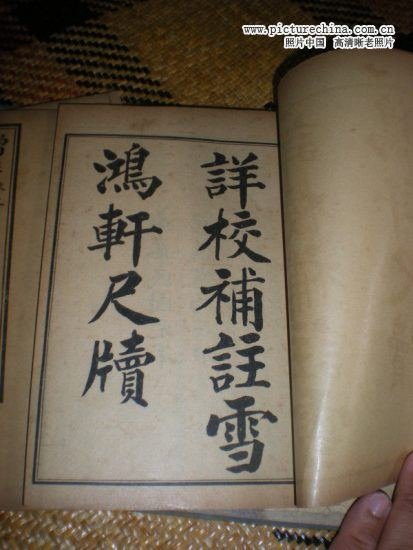 www.picturechina.com.cn
照片中国 高清晰老照片
詳校補註雪
鴻軒尺牘